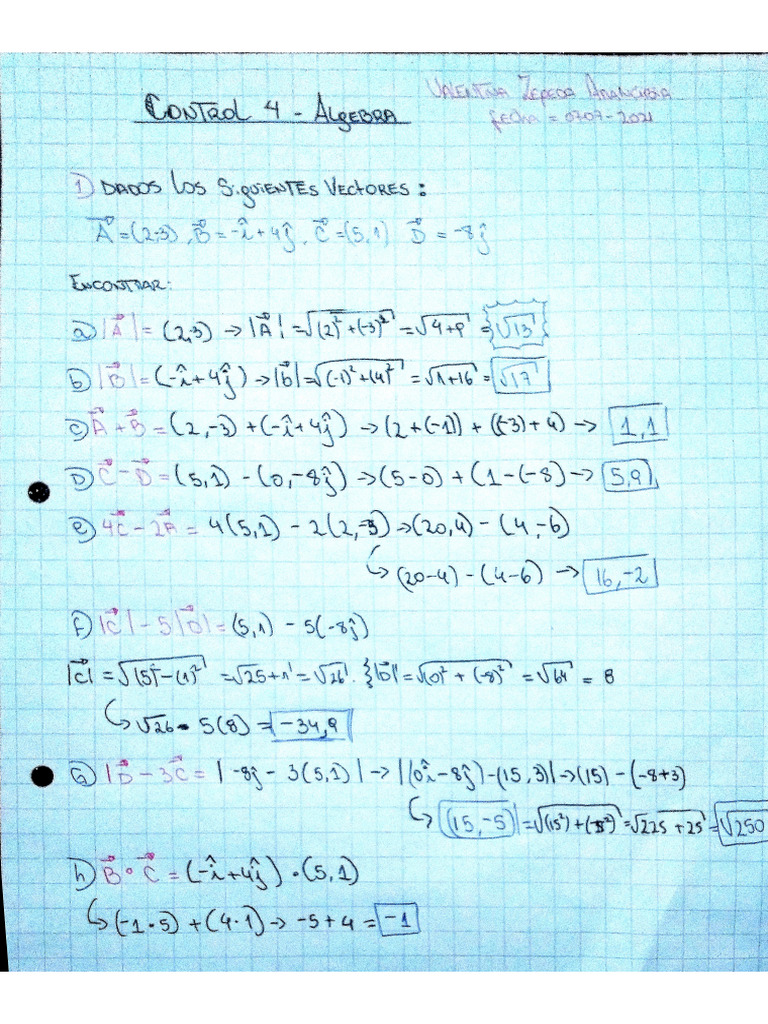 CONTROL 4 - ALGEBRA
VALENTINA ZEPEDA ARANCIBIA
fecha = 0707-2021
1) DADOS LOS SIGUIENTES VECTORES:
A⃗ = (2,-3), B⃗ = -î + 4ĵ, C⃗ = (5,1) D⃗ = -8ĵ
ENCONTRAR:
a) |A⃗| = (2,-3) → |A⃗| = √(2)² + (-3)² = √4+9 = √13
b) |B⃗| = (-î + 4ĵ) → |b⃗| = √(-1)² + (4)² = √1+16 = √17
c) A⃗ + B⃗ = (2,-3) + (-î + 4ĵ) → (2 + (-1)) + ((-3) + 4) → 1,1
D) C⃗ - D⃗ = (5,1) - (0,-8ĵ) → (5-0) + (1-(-8) → 5,9
e) 4C⃗ - 2A⃗ = 4(5,1) - 2(2,-3) → (20,4) - (4,-6)
↳ (20-4) - (4-6) → 16,-2
f) |C⃗| - 5|D⃗| = (5,1) - 5(-8ĵ)
|C⃗| = √(5)² - (1)² = √25+1 = √26. } |D⃗| = √(0)² + (-8)² = √64 = 8
↳ √26 - 5(8) = -34,9
G) |D⃗ - 3C⃗ = | -8ĵ - 3(5,1) | → |(0î - 8ĵ) - (15,3)| → (15) - (-8+3)
↳ (15,-5)| = √(15²) + (-5²) = √225 + 25 = √250
h) B⃗ • C⃗ = (-î + 4ĵ) • (5,1)
↳ (-1 • 5) + (4 • 1) → -5 + 4 = -1